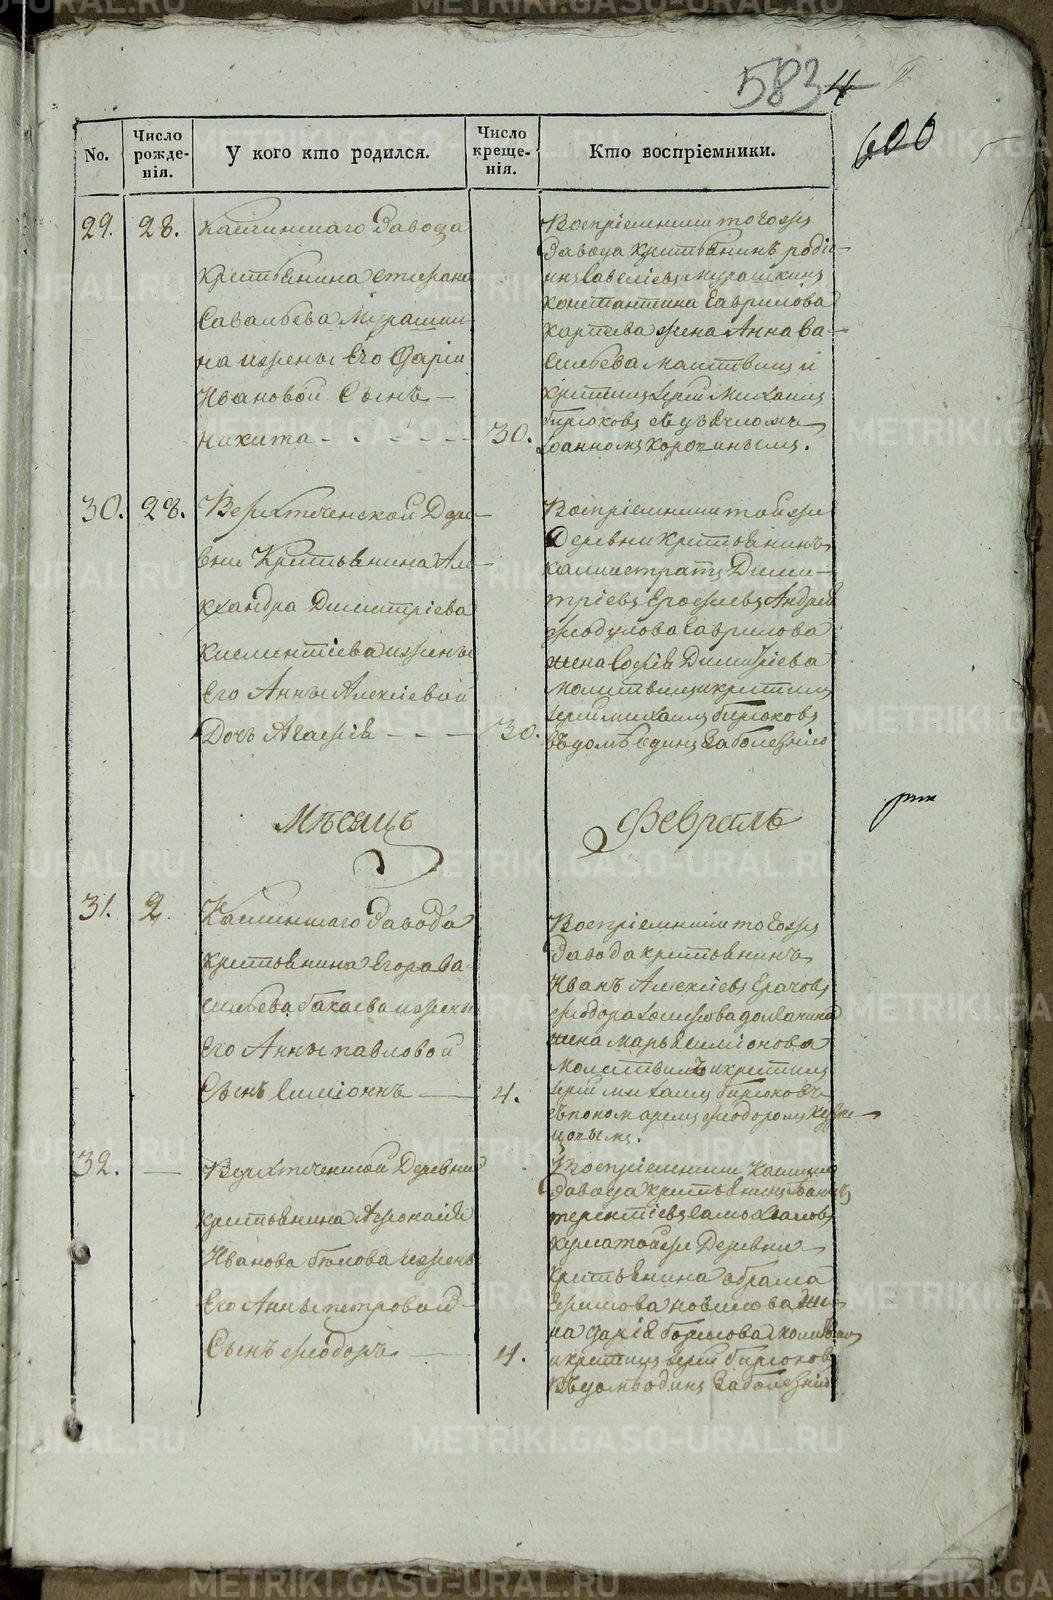 5834
600
No.
Число рожденія.
У кого кто родился.
Число крещенія.
Кто воспріемники.
29. 28.
Каслинскаго Завода
крестьянина Стефана
Савальева Мурашки-
на и жены его Дарьи
Ивановой Сынъ
Никита 30.
Воспріемники того же
Завода крестьянинъ родіо-
нъ Савеліевъ Мурашкинъ
константина Гаврилова
карпева жена Анна Ва-
сильева молитвилъ и
крестилъ іерей Михаилъ
бирюковъ съ дьячкомъ
Іоанномъ
30. 28.
Деревни крестьянина Але-
ксандра Димитріева
климентіева и жены
его Анны Алексіевой
Дочь Агафія 30.
Воспріемники той же
Деревни крестьянинъ
калистратъ Дими-
тріевъ Ерофеевъ Андрея
Гаврилова
жена Софія Димитріева
молитвилъ и крестилъ
іерей михаилъ бирюковъ
въ домѣ единъ за болезнію
Мѣсяцъ Февраль
31. 2.
Каслинскаго Завода
крестьянина Егора Ва-
сильева бакаева и жены
его Анны павловой
Сынъ Симіонъ 4.
Воспріемники того же
Завода крестьянинъ
Иванъ Алексіевъ
жена Марья Симіонова
молитвилъ и крестилъ
іерей михаилъ бирюковъ
съ пономаремъ феодоромъ кузне-
цовымъ.
32.
крестьянина Афонасія
Иванова бѣлова и жены
его Анны петровой
Сынъ феодоръ 4.
Воспріемники
Завода крестьянинъ
терентіевъ
кума той же Деревни
крестьянина абрама
на Дарія борисова
и крестилъ іерей бирюковъ
въ домѣ одинъ за болезнію
METRIKI.GASO-URAL.RU